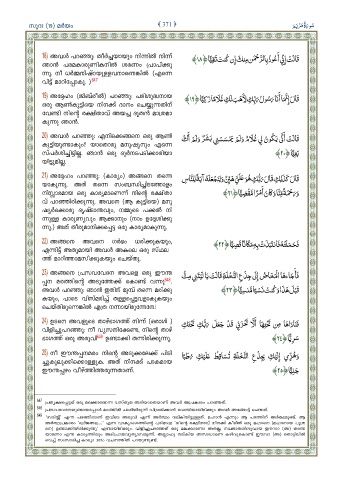 സൂറ (19) മർയം
371
18) അവർ പറഞ്ഞു: തീർച്ചയായും നിന്നിൽ നിന്ന്
ഞാൻ പരമകാരുണികനിൽ ശരണം പ്രാപിക്കു
ന്നു. നീ ധർമ്മനിഷ്ഠയുള്ളവനാണെങ്കിൽ (എന്നെ
വിട്ട് മാറിപ്പോകൂ.)
قَالَتْ إِنِّي أَعُوذُ بِالرَّحْمَٰنِ مِنكَ إِن كُنتَ تَقِيًّا ﴿١٨﴾
19) അദ്ദേഹം (ജിബ്‌രീൽ) പറഞ്ഞു: പരിശുദ്ധനായ
ഒരു ആൺകുട്ടിയെ നിനക്ക് ദാനം ചെയ്യുന്നതിന്
വേണ്ടി നിന്റെ രക്ഷിതാവ് അയച്ച ദൂതൻ മാത്രമാ
കുന്നു ഞാൻ.
قَالَ إِنَّمَا أَنَا رَسُولُ رَبِّكِ لِأَهَبَ لَكِ غُلَامًا زَكِيًّا ﴿١٩﴾
20) അവർ പറഞ്ഞു: എനിക്കെങ്ങനെ ഒരു ആൺ
കുട്ടിയുണ്ടാകും? യാതൊരു മനുഷ്യനും എന്നെ
സ്പർശിച്ചിട്ടില്ല. ഞാൻ ഒരു ദുർനടപടിക്കാരിയാ
യിട്ടുമില്ല.
قَالَتْ أَنَّىٰ يَكُونُ لِي غُلَامٌ وَلَمْ يَمْسَسْنِي بَشَرٌ وَلَمْ أَكُ
بَغِيًّا ﴿٢٠﴾
21) അദ്ദേഹം പറഞ്ഞു: (കാര്യം) അങ്ങനെ തന്നെ
യാകുന്നു. അത് തന്നെ സംബന്ധിച്ചിടത്തോളം
നിസ്സാരമായ ഒരു കാര്യമാണെന്ന് നിന്റെ രക്ഷിതാ
വ് പറഞ്ഞിരിക്കുന്നു. അവനെ (ആ കുട്ടിയെ) മനു
ഷ്യർക്കൊരു ദൃഷ്ടാന്തവും, നമ്മുടെ പക്കൽ നി
ന്നുള്ള കാരുണ്യവും ആക്കാനും (നാം ഉദ്ദേശിക്കു
ന്നു.) അത് തീരുമാനിക്കപ്പെട്ട ഒരു കാര്യമാകുന്നു.
قَالَ كَذَٰلِكِ قَالَ رَبُّكِ هُوَ عَلَيَّ هَيِّنٌ وَلِنَجْعَلَهُ آيَةً لِّلنَّاسِ
وَرَحْمَةً مِّنَّا وَكَانَ أَمْرًا مَّقْضِيًّا ﴿٢١﴾
22) അങ്ങനെ അവനെ ഗർഭം ധരിക്കുകയും,
എന്നിട്ട് അതുമായി അവൾ അകലെ ഒരു സ്ഥല
ത്ത് മാറിത്താമസിക്കുകയും ചെയ്തു.
فَحَمَلَتْهُ فَانتَبَذَتْ بِهِ مَكَانًا قَصِيًّا ﴿٢٢﴾
23) അങ്ങനെ പ്രസവവേദന അവളെ ഒരു ഈന്ത
പ്പന മരത്തിന്റെ അടുത്തേക്ക് കൊണ്ട് വന്നു.
അവർ പറഞ്ഞു: ഞാൻ ഇതിന് മുമ്പ് തന്നെ മരിക്കു
കയും, പാടെ വിസ്മരിച്ച് തള്ളപ്പെട്ടവളാകുകയും
ചെയ്തിരുന്നെങ്കിൽ എത്ര നന്നായിരുന്നേനേ!
فَأَجَاءَهَا الْمَخَاضُ إِلَىٰ جِذْعِ النَّخْلَةِ قَالَتْ يَا لَيْتَنِي مِتُّ
قَبْلَ هَٰذَا وَكُنتُ نَسْيًا مَّنسِيًّا ﴿٢٣﴾
24) ഉടനെ അവളുടെ താഴ്ഭാഗത്ത് നിന്ന് (ഒരാൾ)
വിളിച്ചുപറഞ്ഞു: നീ വ്യസനിക്കേണ്ട, നിന്റെ താഴ്
ഭാഗത്ത് ഒരു അരുവി ഉണ്ടാക്കി തന്നിരിക്കുന്നു.
فَنَادَاهَا مِن تَحْتِهَا أَلَّا تَحْزَنِي قَدْ جَعَلَ رَبُّكِ تَحْتَكِ
سَرِيًّا ﴿٢٤﴾
25) നീ ഈന്തപ്പനമരം നിന്റെ അടുക്കലേക്ക് പിടി
ച്ചുകുലുക്കിക്കൊള്ളുക. അത് നിനക്ക് പാകമായ
ഈന്തപ്പഴം വീഴ്ത്തിത്തരുന്നതാണ്.
وَهُزِّي إِلَيْكِ بِجِذْعِ النَّخْلَةِ تُسَاقِطْ عَلَيْكِ رُطَبًا
جَنِيًّا ﴿٢٥﴾